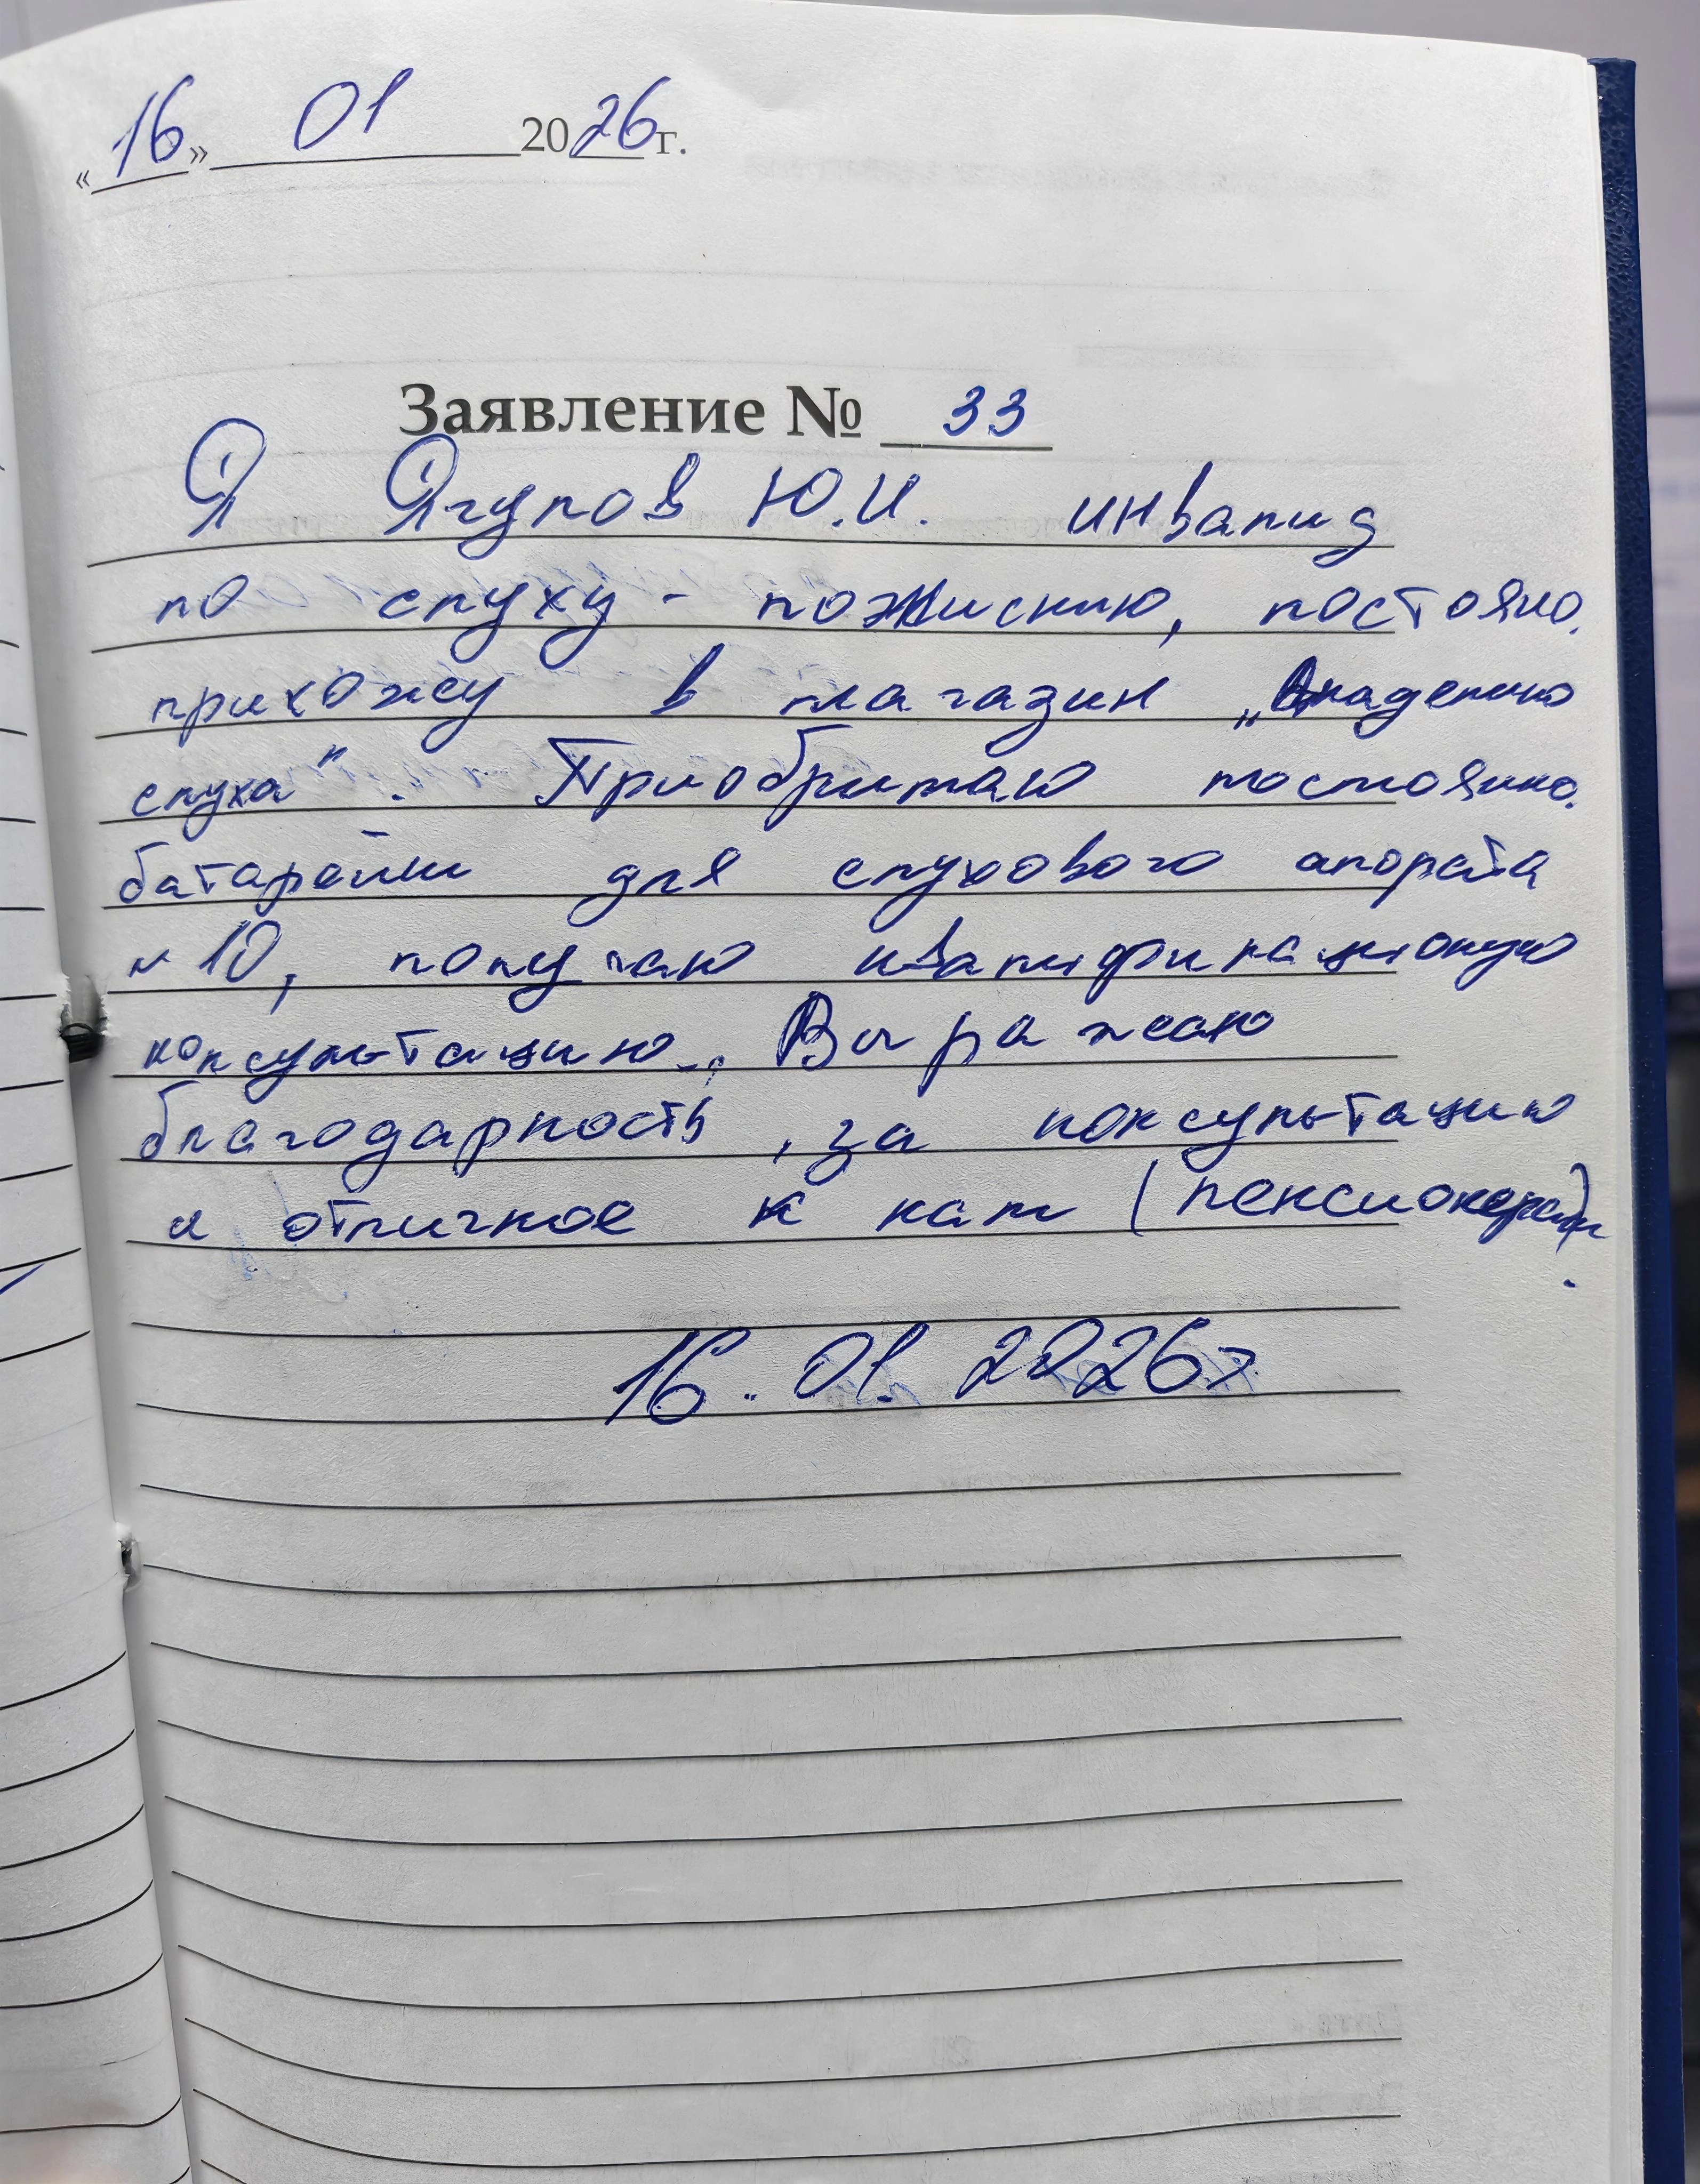 «16» 01 2026 г.
Заявление № 33
Я Ягупов Ю.И. инвалид
по слуху - пожизнию, постояно
прихожу в магазин „Академию
слуха". Приобритаю постоянно
батарейки для слухового апората
№ 10, получаю квалификационую
консультацию. Выражаю
благодарность, за консультацию
и отличное к нам (пенсионерам).
16.01.2026г